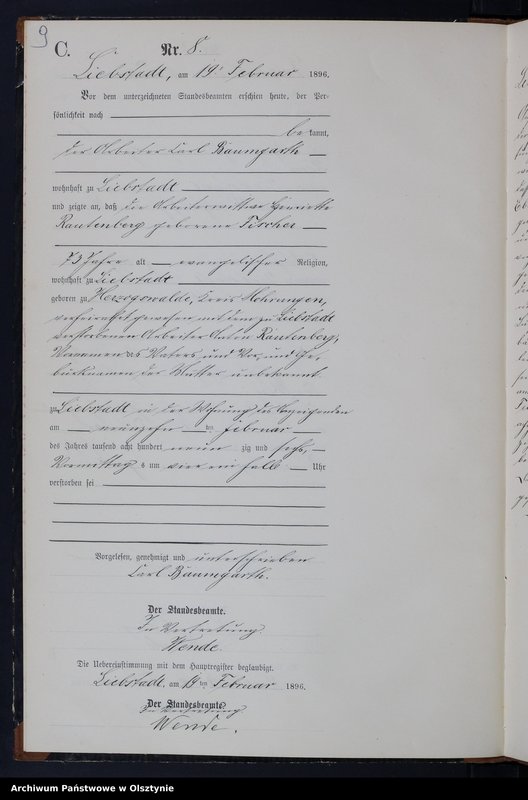 9
C.
Nr. 8.
Liebstadt, am 19. Februar 1896.
Vor dem unterzeichneten Standesbeamten erschien heute, der Per-
sönlichkeit nach
be kannt,
der Arbeiter Carl Baumgarth
wohnhaft zu Liebstadt
und zeigte an, daß die Arbeiterwittwe Henriette
Rautenberg geborene Fischer
73 Jahre alt evangelischer Religion,
wohnhaft zu Liebstadt
geboren zu Herzogswalde, Kreis Mohrungen,
verheirathet gewesen mit dem zu Liebstadt
verstorbenen Arbeiter Anton Rautenberg,
Namen des Vaters und Vor- und Ge-
burtsnamen der Mutter unbekannt
zu Liebstadt in der Wohnung des Anzeigenden
am neunzehn ten Februar
des Jahres tausend acht hundert neun zig und sechs,
Vormittag s um vier ein halb Uhr
verstorben sei
Vorgelesen, genehmigt und unterschrieben
Carl Baumgarth.
Der Standesbeamte.
In Vertretung
Wende.
Die Uebereinstimmung mit dem Hauptregister beglaubigt.
Liebstadt, am 19 ten Februar 1896.
Der Standesbeamte
In Vertretung
Wende.
Archiwum Państwowe w Olsztynie